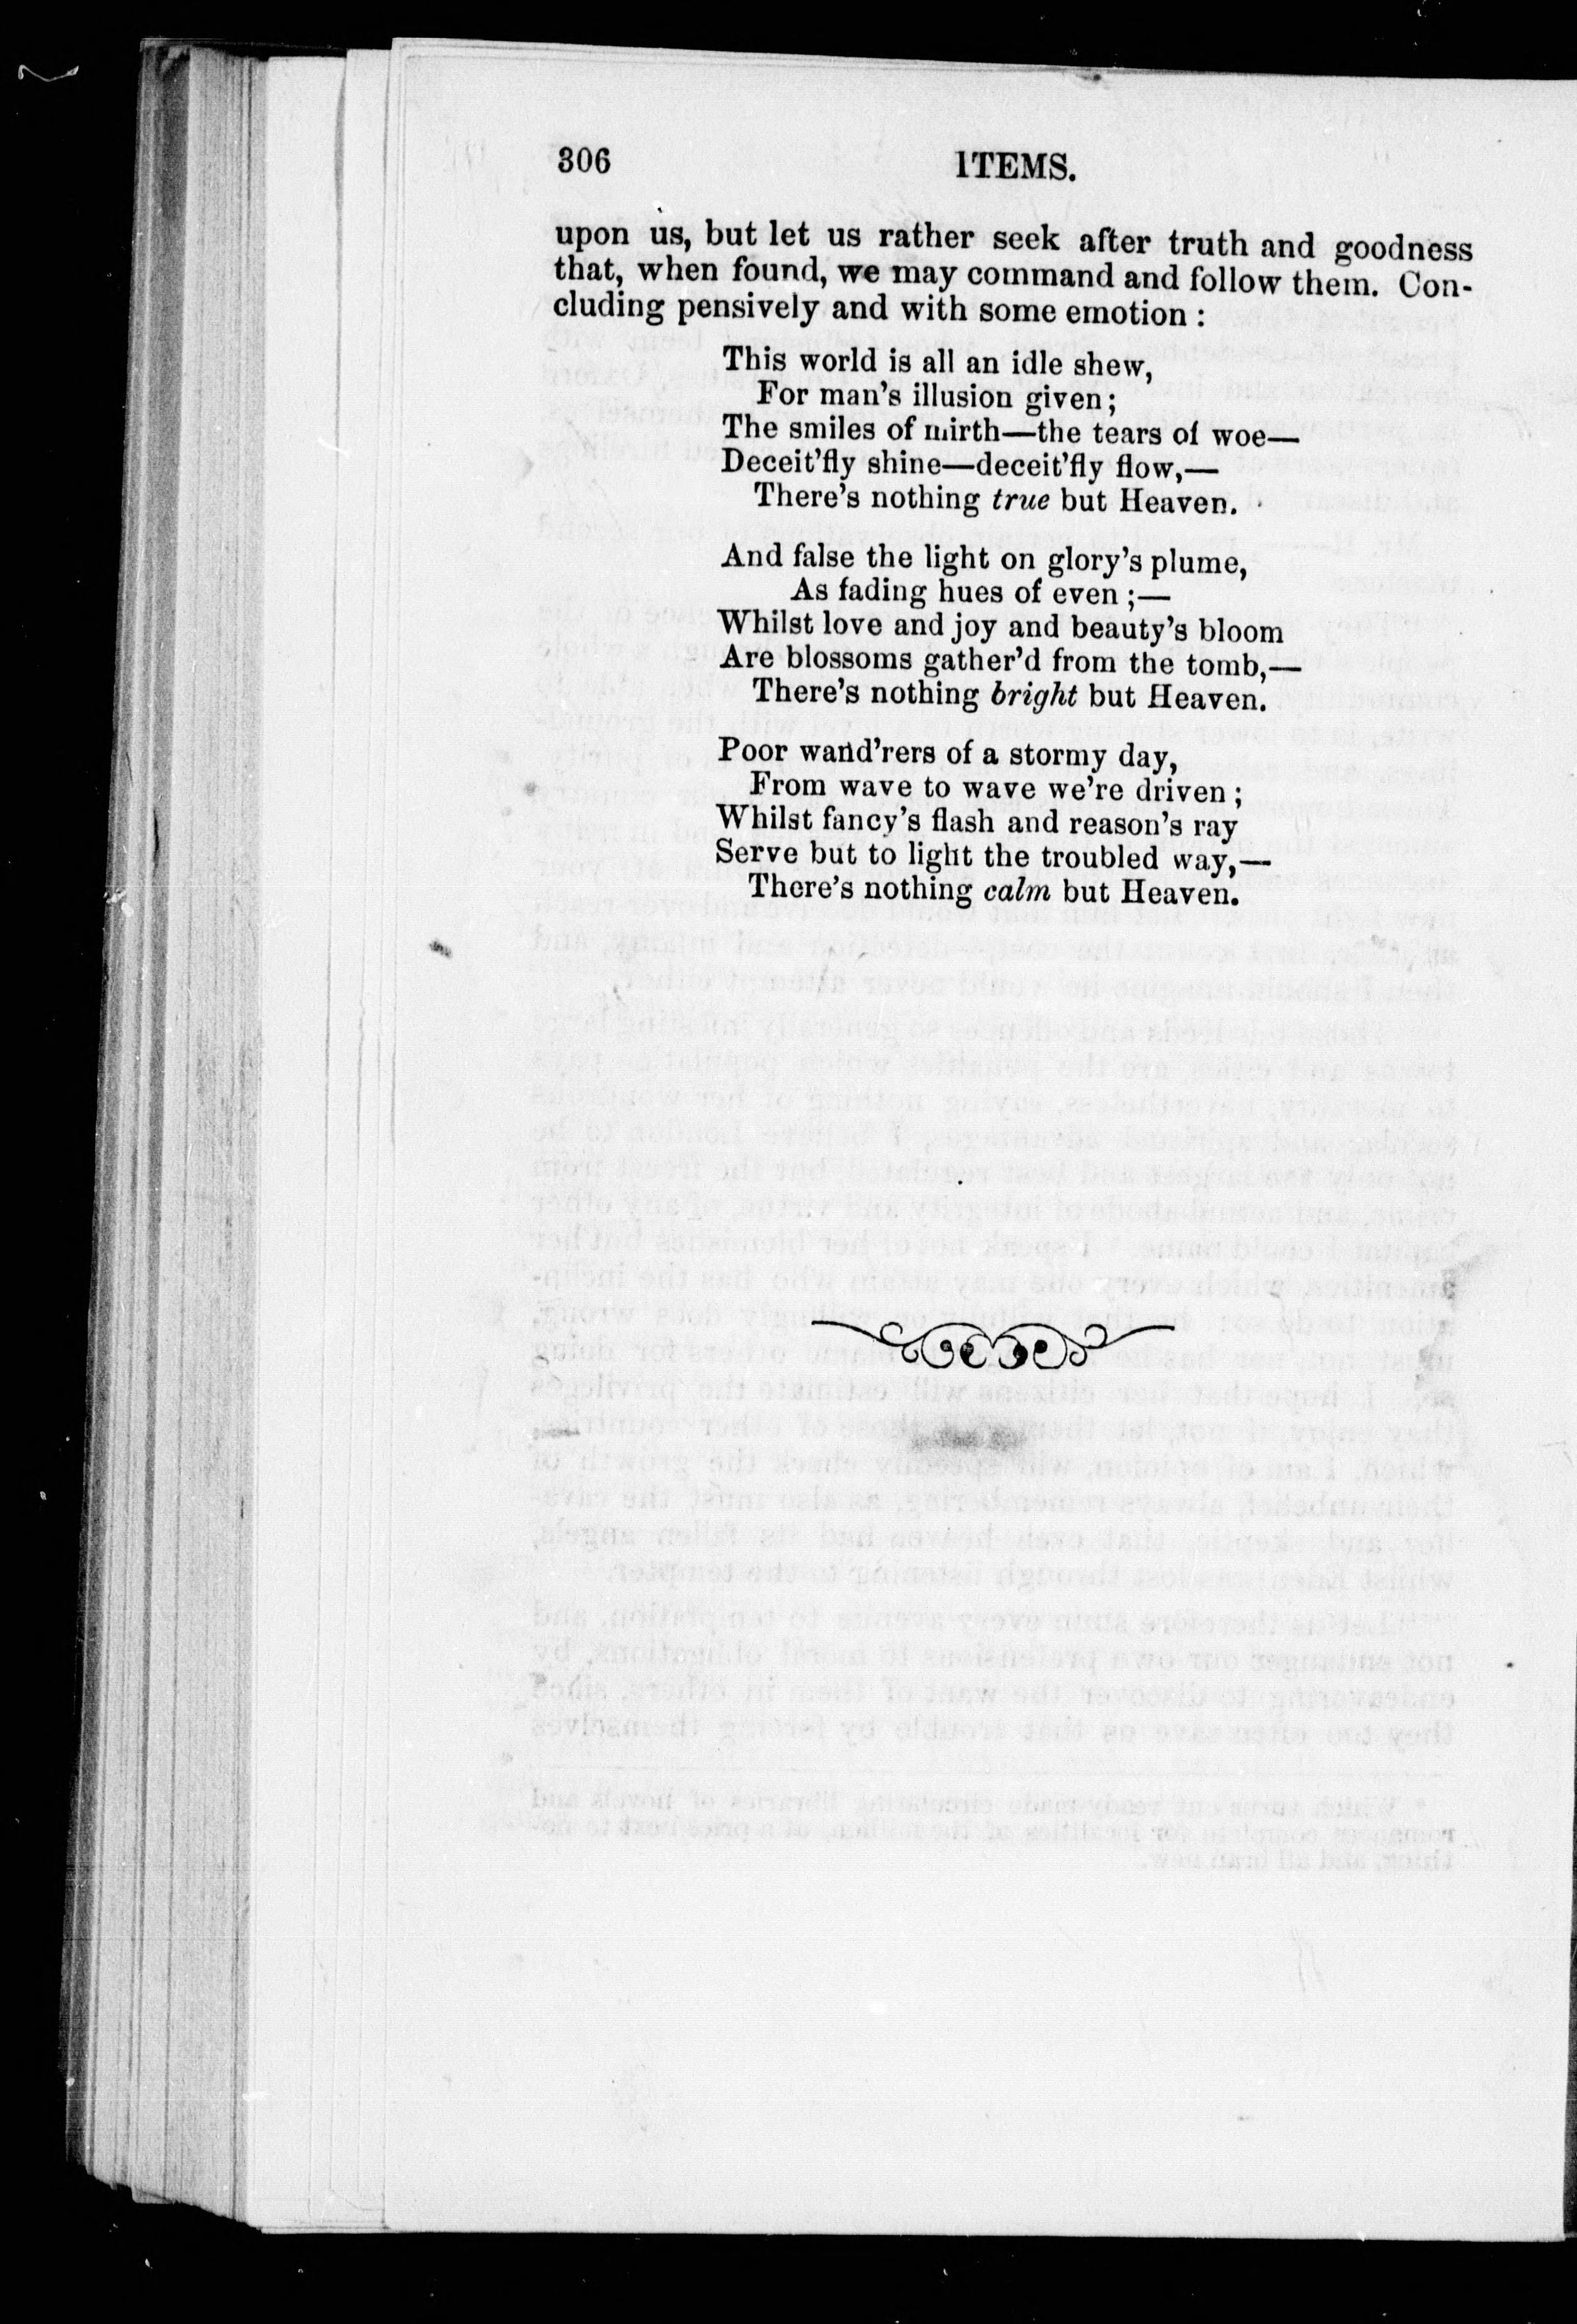 306 ITEMS.
upon us, but let us rather seek after truth and goodness
that, when found, we may command and follow them. Con-
cluding pensively and with some emotion :
This world is all an idle shew,
For man's illusion given;
The smiles of mirth—the tears of woe—
Deceit'fly shine—deceit'fly flow,—
There's nothing true but Heaven.
And false the light on glory's plume,
As fading hues of even ;—
Whilst love and joy and beauty's bloom
Are blossoms gather'd from the tomb,—
There's nothing bright but Heaven.
Poor wand'rers of a stormy day,
From wave to wave we're driven ;
Whilst fancy's flash and reason's ray
Serve but to light the troubled way,—
There's nothing calm but Heaven.